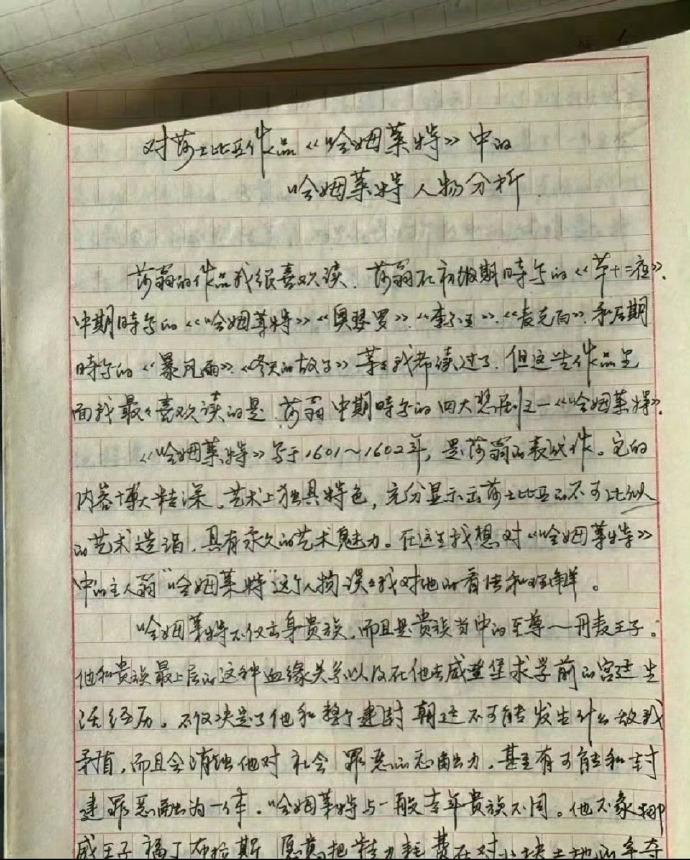 对莎士比亚作品《哈姆莱特》中的
哈姆莱特人物分析.
莎翁的作品我很喜欢读.莎翁在初级期时写的《第十二夜》.
中期时写的《哈姆莱特》《奥瑟罗》.《李尔王》.《麦克白》.和后期
时写的《暴风雨》.《冬天的故事》等我都读过了.但这些作品里
面我最喜欢读的是.莎翁中期时写的四大悲剧之一《哈姆莱特》.
《哈姆莱特》写于1601~1602年,是莎翁的代表作。它的
内容博大精深.艺术上独具特色,充分显示出莎士比亚的不可比似
的艺术造诣.具有永久的艺术魅力。在这里我想对《哈姆莱特》
中的主人翁"哈姆莱特"这个人物谈谈我对他的看法和理解。
哈姆莱特不仅出身贵族.而且是贵族当中的至尊—丹麦王子。
他和贵族最上层的这种血缘关系以及在他去威登堡求学前的宫廷生
活经历.不仅决定了他和整个封建朝廷不可能发生什么敌我
矛盾,而且会消蚀他对社会罪恶的洞出力.甚至有可能和封
建罪恶融为一体.哈姆莱特与一般青年贵族不同。他不象挪
威王子福丁布拉斯.愿意把精力耗费在对小块土地的争夺